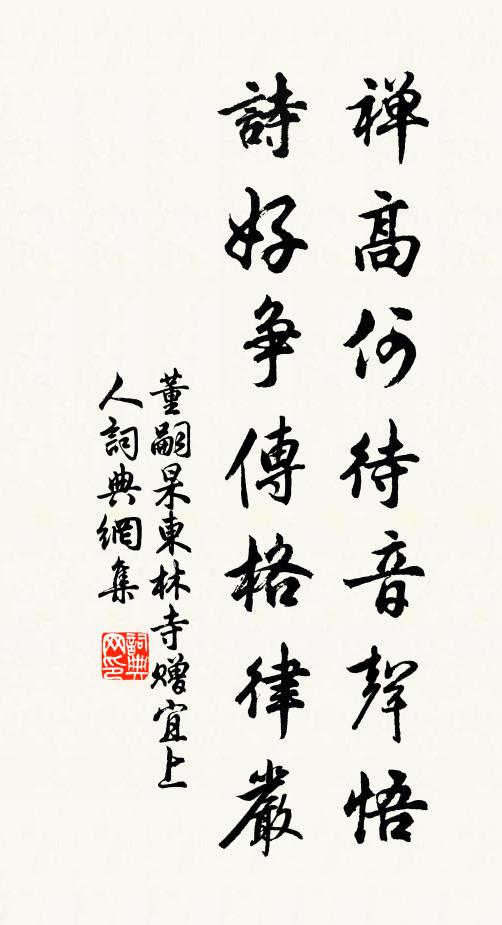 禅高何待音聲悟
詩好争傳格律嚴
董嗣杲東林寺贈宜上
人詞典網集
詞典网印